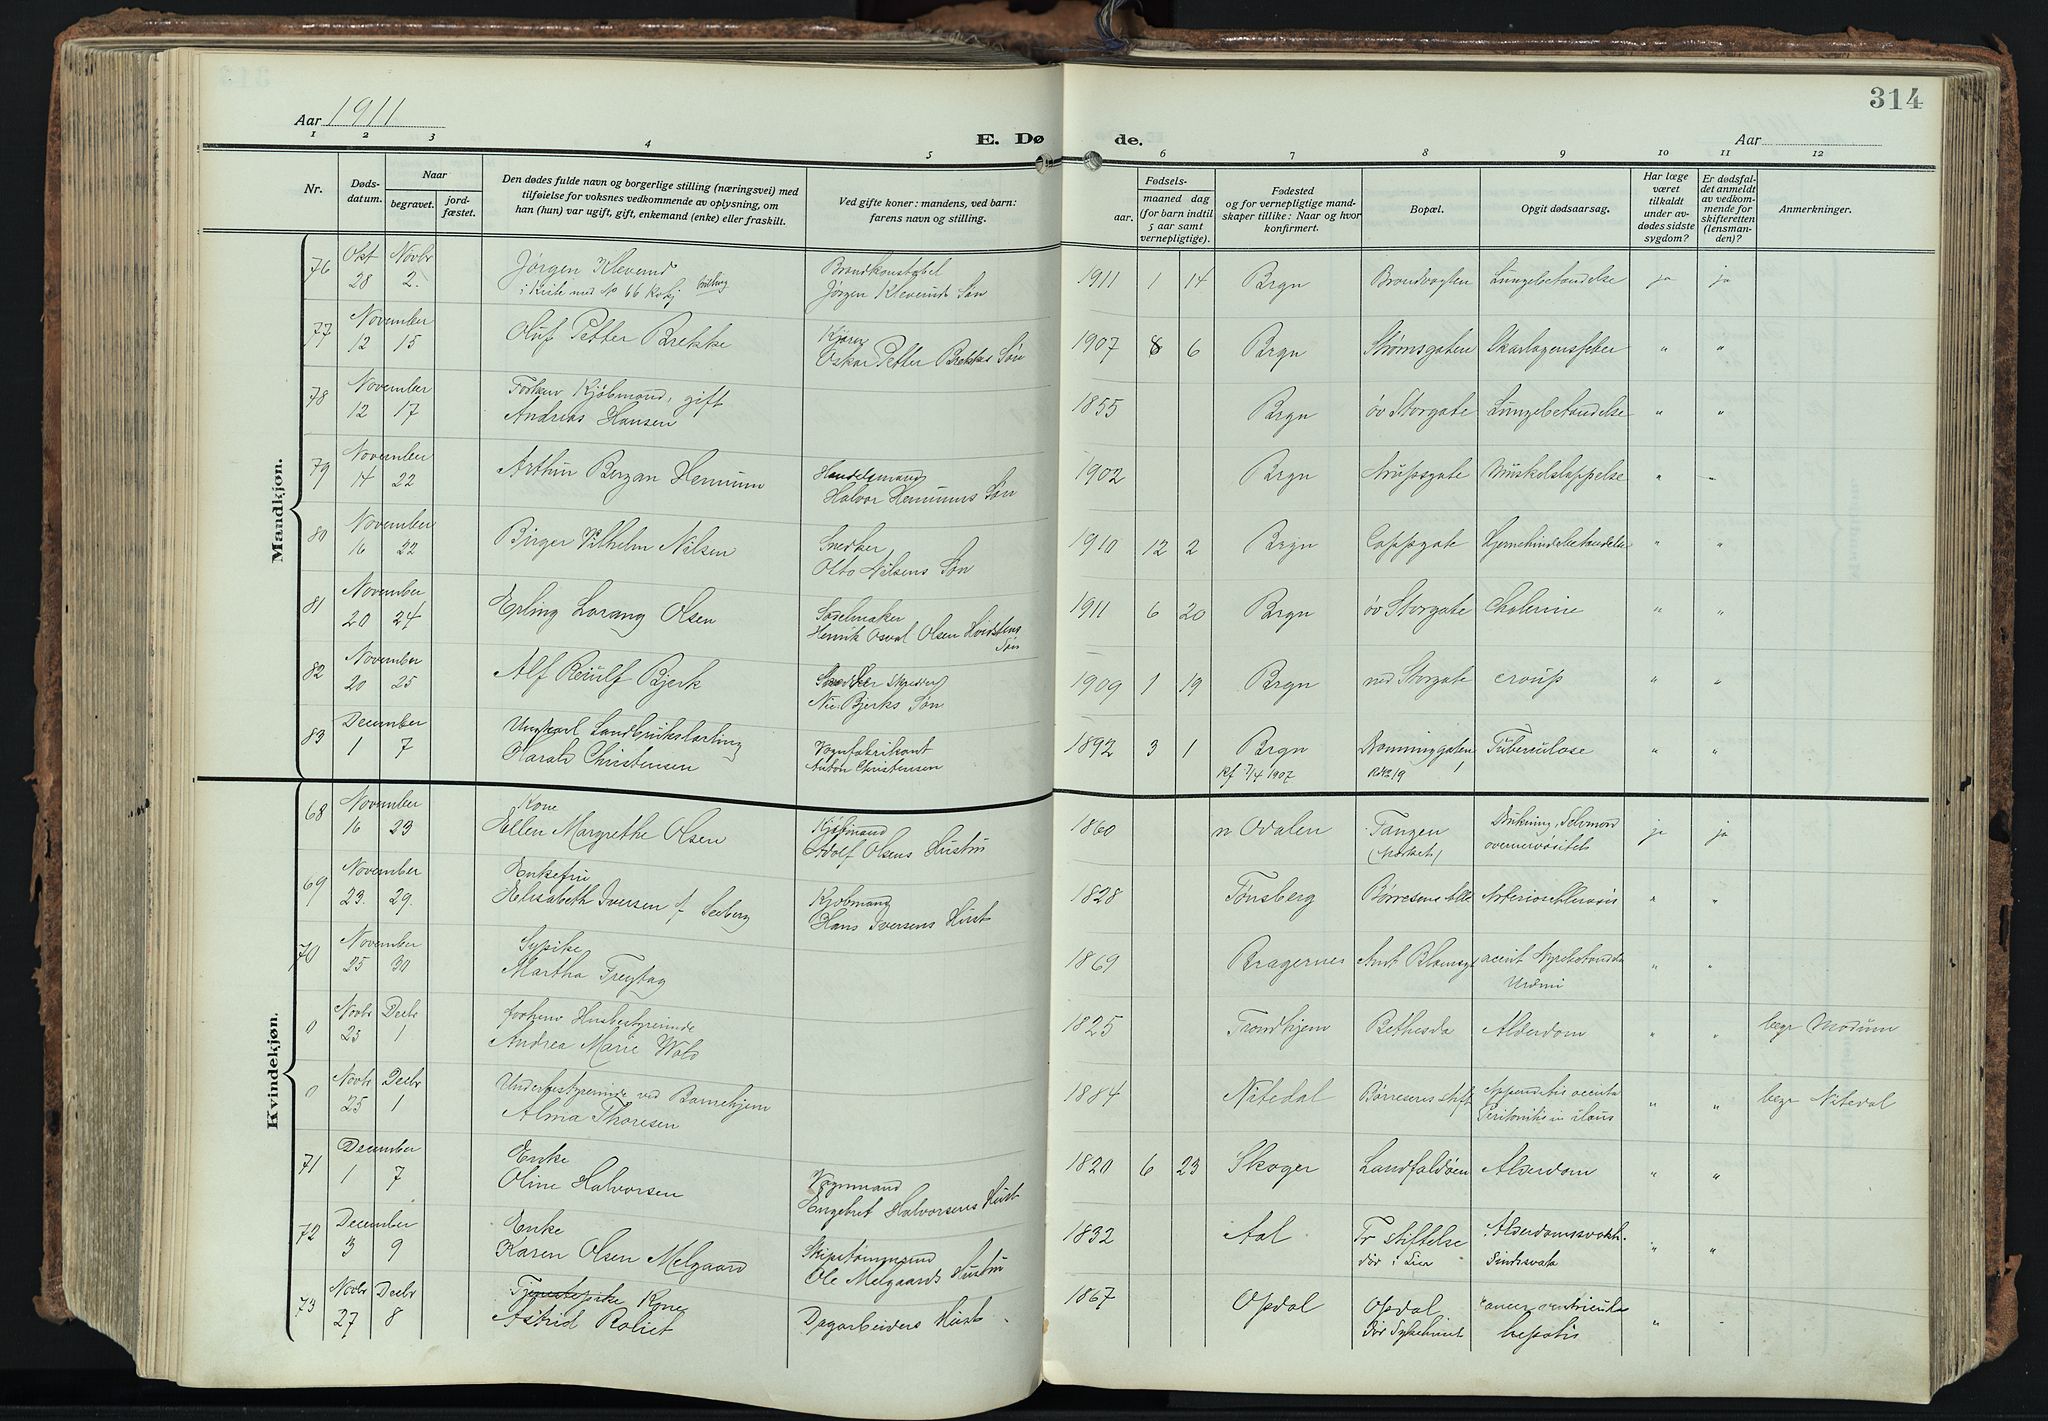 314
Aar 1911
E. Dø de.
Aar
1 2 3 4 5 6 7 8 9 10 11 12
Nr.
Døds-
datum.
Naar
begravet.
jord-
fæstet.
Den dødes fulde navn og borgerlige stilling (næringsvei) med
tilføielse for voksnes vedkommende av oplysning, om
han (hun) var ugift, gift, enkemand (enke) eller fraskilt.
Ved gifte koner: mandens, ved barn:
farens navn og stilling.
Fødsels-
aar. maaned dag
(for barn indtil
5 aar samt
vernepligtige).
Fødested
og for vernepligtige mand-
skaper tillike: Naar og hvor
konfirmert.
Bopæl.
Opgit dødsaarsag.
Har læge
været
tilkaldt
under av-
dødes sidste
sygdom?
Er dødsfal-
det anmeldt
av vedkom-
mende for
skifteretten
(lensman-
den)?
Anmerkninger.
Mandkjøn.
76 Okt Novbr Jørgen Kleverud Brandkonstabel
28 2. i Kiste med No 66 Jørgen Kleveruds Søn 1911 1 14 Brgn Brandvagten Lungebetændelse ja ja
77 November Oluf Petter Brekke Kjører
12 15 Oskar Petter Brekkes Søn 1907 8 6 Brgn Strømsgaten Skarlagensfeber " "
78 November Forhenv Kjøbmand, gift
12 17 Andreas Hansen 1855 Brgn øv Storgate Lungebetændelse " "
79 November Arthur Bergan Hennum Handelsmand
14 22 Halvor Hennums Søn 1902 Brgn Arupsgate Muskelslappelse " "
80 November Birger Vilhelm Nilsen Snedker
16 22 Otto Nilsens Søn 1910 12 2 Brgn Cappsgate Hjernehindebetændelse " "
81 November Erling Lorang Olsen Sadelmaker
20 24 Henrik Osval Olsen Hvidstens
Søn 1911 6 20 Brgn øv Storgate Cholerine " "
82 November Alf Reiulf Bjerk Skredder
20 25 Bjerks Søn 1909 1 19 Brgn ned Storgate croup " "
83 December Ungkarl
1 7 Harald Christensen Vognfabrikant
Anton Christensen 1892 3 1 Brgn Dronninggaten Tuberculose " "
Kf 7/4 1907
Kvindekjøn.
68 November Kone
16 23 Ellen Margrethe Olsen Kjøbmand
Adolf Olsens Hustru 1860 n Odalen Tangen Drukning, Selvmord ja ja
69 November Enkefru
23. 29. Elisabeth Iversen f. Seeberg Kjøbmand
Hans Iversens Hust 1828 Tønsberg Børresens Alle Arteriosklerosis " "
70 November Sypike
25 30 Martha Freytag 1869 Bragernes " "
Urämi
0 Novbr Decbr forhenv Husbestyrerinde
25 1 Andrea Marie Wold 1825 Trondhjem Bethesda Alderdom " " begr Modum
0 Novbr Decbr Underbestyrerinde ved Barnehjem
25 1 Alma Thoresen 1884 Nitedal Børresens stift " " begr Nitedal
71 December Enke
1 7 Oline Halvorsen Vognmand
Engebret Halvorsens Hust 1820 6 23 Skoger Landfaldøen Alderdom " "
72 December Enke
3 9 Karen Olsen Melgaard Skipstømmermand
Ole Melgaards Hustru 1832 Aal Tr Stiftelse Alderdomssvakh. " "
død i Lier
73 Novbr Decbr Tjenestepike Kone
27 8 Astrid Dagarbeiders Hust 1867 Opdal Opdal cancer ventriculi " .
hepatis